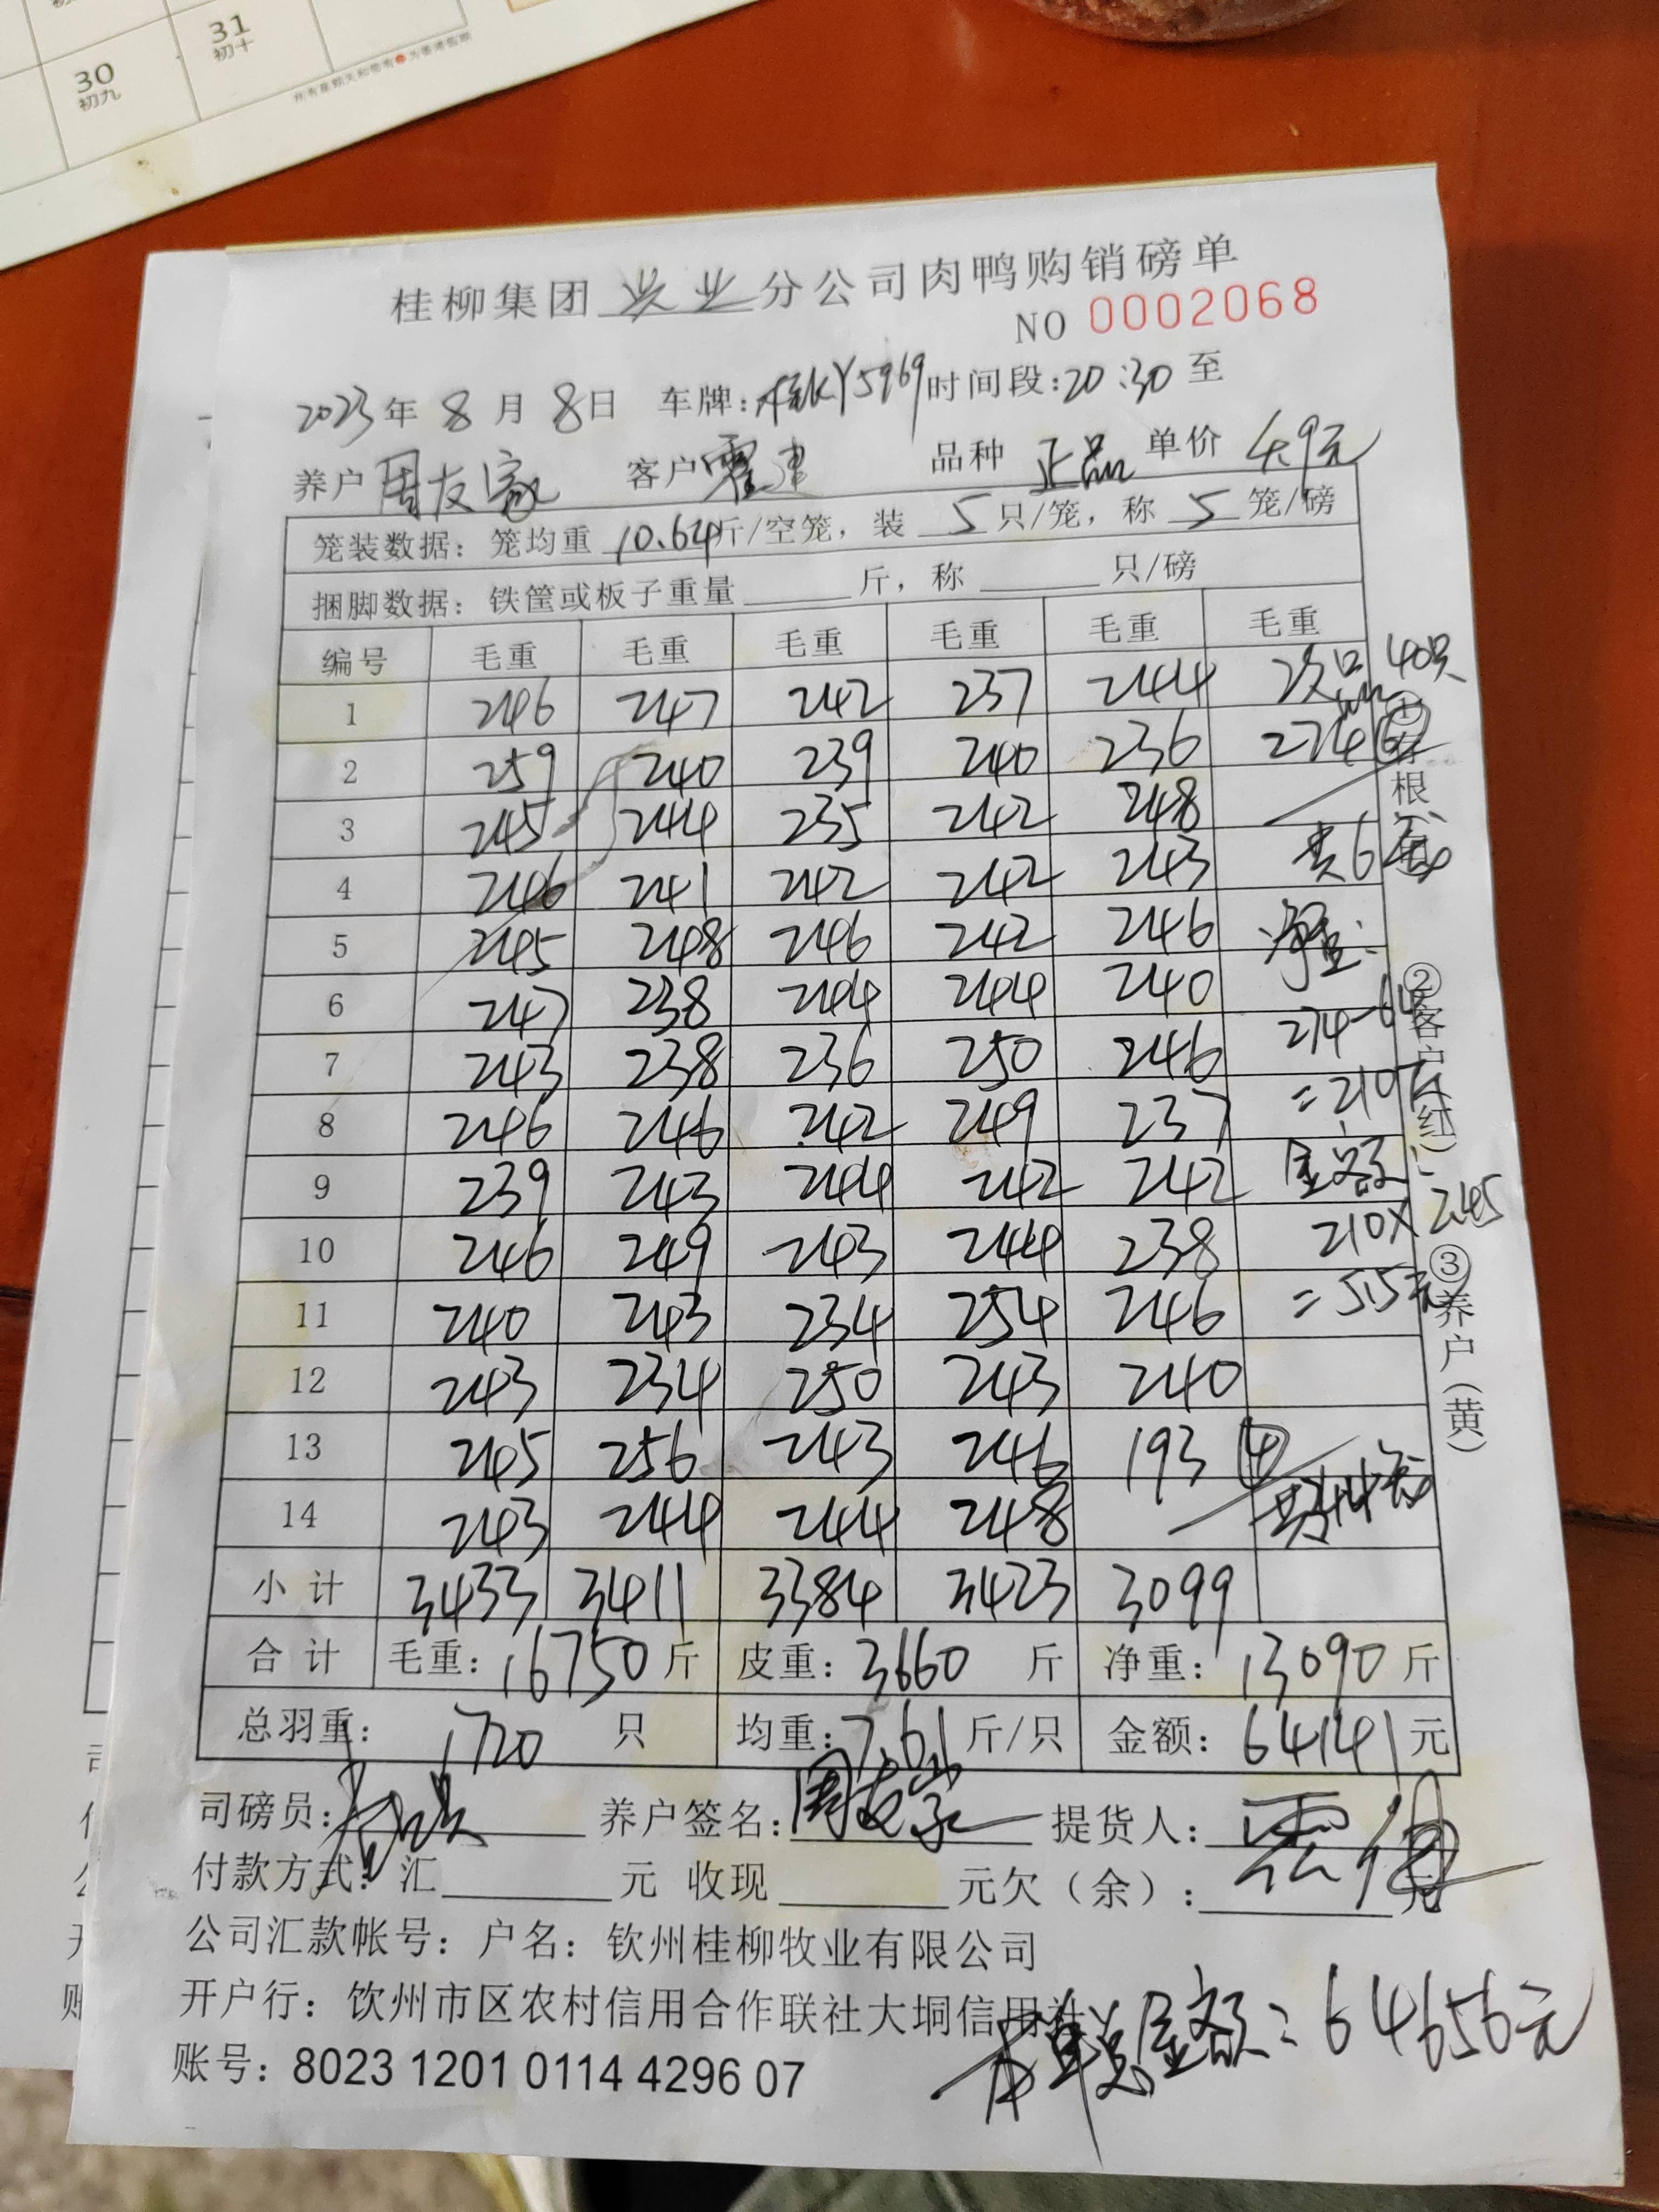 30
初九
31
初十
桂柳集团 分公司肉鸭购销磅单
NO 0002068
2023年 8 月 8日 车牌: Y5969 时间段:20:30 至
养户 周友家 客户 霍建 品种 正品 单价 4.9元
笼装数据: 笼均重 10.64斤/空笼, 装 5 只/笼, 称 5 笼/磅
捆脚数据: 铁筐或板子重量 斤, 称 只/磅
编号 毛重 毛重 毛重 毛重 毛重 毛重
1 246 247 242 237 244 次品 40只
2 259 240 239 240 236 274 ⑥
3 245 244 235 242 248
4 246 241 242 242 243 共6
5 245 248 246 242 246 净重:
6 247 238 244 244 240 274-64
7 243 238 236 250 246 =210斤
8 246 246 242 249 237 金额:
9 239 243 244 242 242 210×2.45
10 246 249 243 244 238 =515元
11 240 243 234 254 246
12 243 234 250 243 240
13 245 256 243 246 193 ④
14 243 244 244 248
小计 3433 3411 3384 3423 3099
合计 毛重: 16750 斤 皮重: 3660 斤 净重: 13090 斤
总羽重: 1720 只 均重: 7.61 斤/只 金额: 64141 元
①存根
②客户(红)
③养户(黄)
司磅员: 养户签名: 周友家 提货人:
付款方式: 汇 元 收现 元欠(余): 元
公司汇款帐号: 户名: 钦州桂柳牧业有限公司
开户行: 钦州市区农村信用合作联社大垌信用社
账号: 8023 1201 0114 4296 07
本单总金额: 64656元